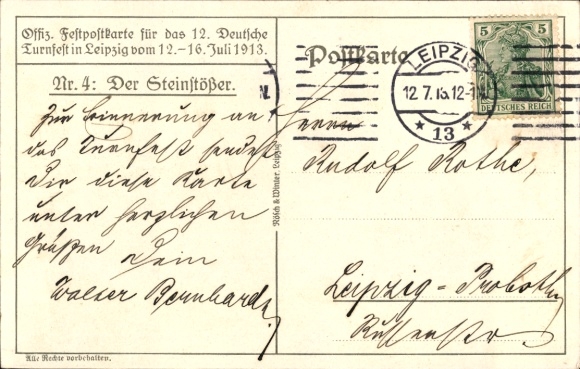 Offiz. Festpostkarte für das 12. Deutsche
Turnfest in Leipzig vom 12.-16. Juli 1913.
Nr. 4: Der Steinstößer.
Zur Erinnerung an
das Turnfest sendet
Dir diese Karte
unter herzlichen
Grüßen Dein
Walter Bernhardt.
Alle Rechte vorbehalten.
Rösch & Winter, Leipzig
Postkarte
LEIPZIG
12.7.13.12-1
* 13 *
5 5
DEUTSCHES REICH
Herrn
Rudolf Rothe,
Leipzig-